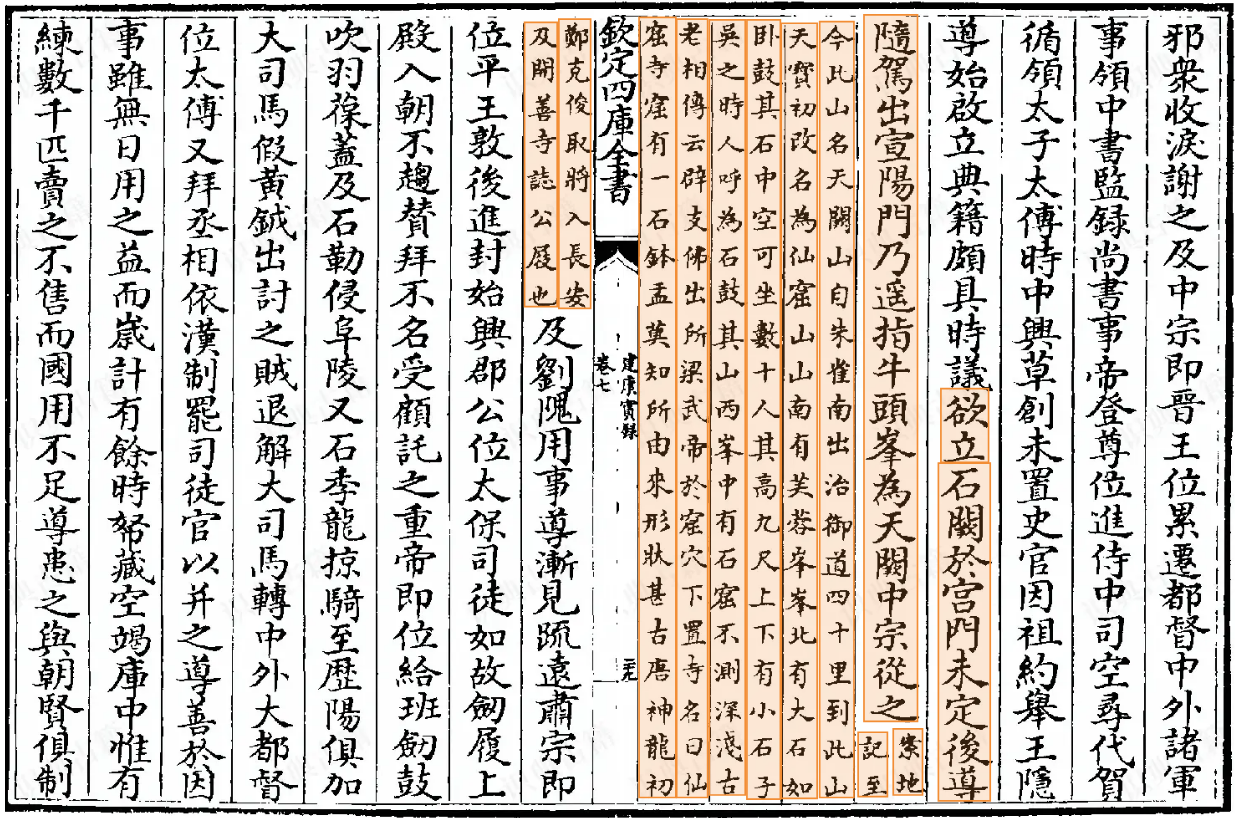 邪衆收淚謝之及中宗即晉王位累遷都督中外諸軍
事領中書監録尚書事帝登尊位進侍中司空尋代賀
循領太子太傅時中興草創未置史官因祖約舉王隱
導始啟立典籍頗具時議欲立石闕於宫門未定後導
隨駕出宣陽門乃遥指牛頭峯為天闕中宗從之
案地
記至
今此山名天闕山自朱雀南出沿御道四十里到此山
天寳初改名為仙窟山山南有芙蓉峯峯北有大石如
卧鼓其石中空可坐數十人其高九尺上下有小石子
吳之時人呼為石鼓其山西峯中有石窟不測深淺古
老相傳云辟支佛出所梁武帝於窟穴下置寺名曰仙
窟寺窟有一石鉢盂莫知所由來形狀甚古唐神龍初
欽定四庫全書
建康實録
卷七
二十九
鄭克俊取將入長安
及開善寺誌公屐也
及劉隗用事導漸見疏遠肅宗即
位平王敦後進封始興郡公位太保司徒如故劒履上
殿入朝不趨賛拜不名受顧託之重帝即位給班劒鼓
吹羽葆蓋及石勒侵阜陵又石季龍掠騎至歴陽俱加
大司馬假黄鉞出討之賊退解大司馬轉中外大都督
位太傅又拜丞相依漢制罷司徒官以并之導善於因
事雖無日用之益而歲計有餘時帑藏空竭庫中惟有
練數千匹賣之不售而國用不足導患之與朝賢俱制